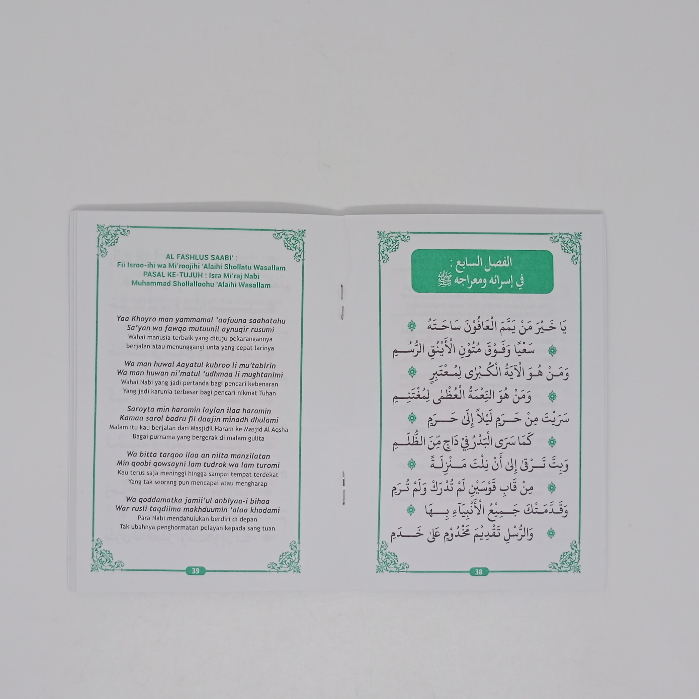 الفصل السابع :
في إسرائه ومعراجه ﷺ
يَا خَيْرَ مَنْ يَمَّمَ الْعَافُوْنَ سَاحَتَهُ
سَعْيًا وَفَوْقَ مُتُوْنِ الْأَيْنُقِ الرُّسُـمِ
وَمَنْ هُـوَ الْآيَةُ الْكُـبْرَى لِمُعْتَبِرٍ
وَمَنْ هُوَ النِّعْمَةُ الْعُظْمَى لِمُغْتَنِـمِ
سَرَيْتَ مِنْ حَـرَمٍ لَيْلاً إِلَى حَـرَمٍ
كَمَا سَرَى الْبَدْرُ فِيْ دَاجٍ مِنَ الظُّلَـمِ
وَبِتَّ تَـرْقَى إِلَى أَنْ نِلْتَ مَـنْزِلَـةً
مِنْ قَابِ قَوْسَيْنِ لَمْ تُدْرَكْ وَلَمْ تُـرَمِ
وَقَدَّمَتْكَ جَـمِيْعُ الْأَنْبِيَـآءِ بِـهَا
وَالرُّسْلِ تَقْدِيْمَ مَخْدُوْمٍ عَلَى خَـدَمِ
38
AL FASHLUS SAABI' :
Fii Isroo-ihi wa Mi'roojihi 'Alaihi Shollatu Wasallam
PASAL KE-TUJUH : Isra Mi'raj Nabi
Muhammad Shollalloohu 'Alaihi Wasallam
Yaa Khayro man yammamal 'aafuuna saahatahu
Sa'yan wa fawqo mutuunil aynuqir rusumi
Wahai manusia terbaik yang dituju pekarangannya
berjalan atau menunggangi unta yang cepat larinya
Wa man huwal Aayatul kubroo li mu'tabirin
Wa man huwan ni'matul 'udhmaa li mughtanimi
Wahai Nabi yang jadi pertanda bagi pencari kebenaran
Yang jadi karunia terbesar bagi pencari nikmat Tuhan
Sarayta min haromin laylan ilaa haromin
Kamaa sarol badru fii daajin minadh dhulami
Malam itu kau berjalan dari Masjidil Haram ke Masjid Al Aqsha
Bagai purnama yang bergerak di malam gulita
Wa bitta tarqoo ilaa an nilta manzilatan
Min qoobi qowsayni lam tudrok wa lam turomi
Kau terus saja meninggi hingga sampai tempat terdekat
Yang tak seorang pun mencapai atau mengharap
Wa qoddamatka jamii'ul anbiyaa-i bihaa
War rusli taqdiima makhduumin 'alaa khodami
Para Nabi mendahulukan berdiri di depan
Tak ubahnya penghormatan pelayan kepada sang tuan
39